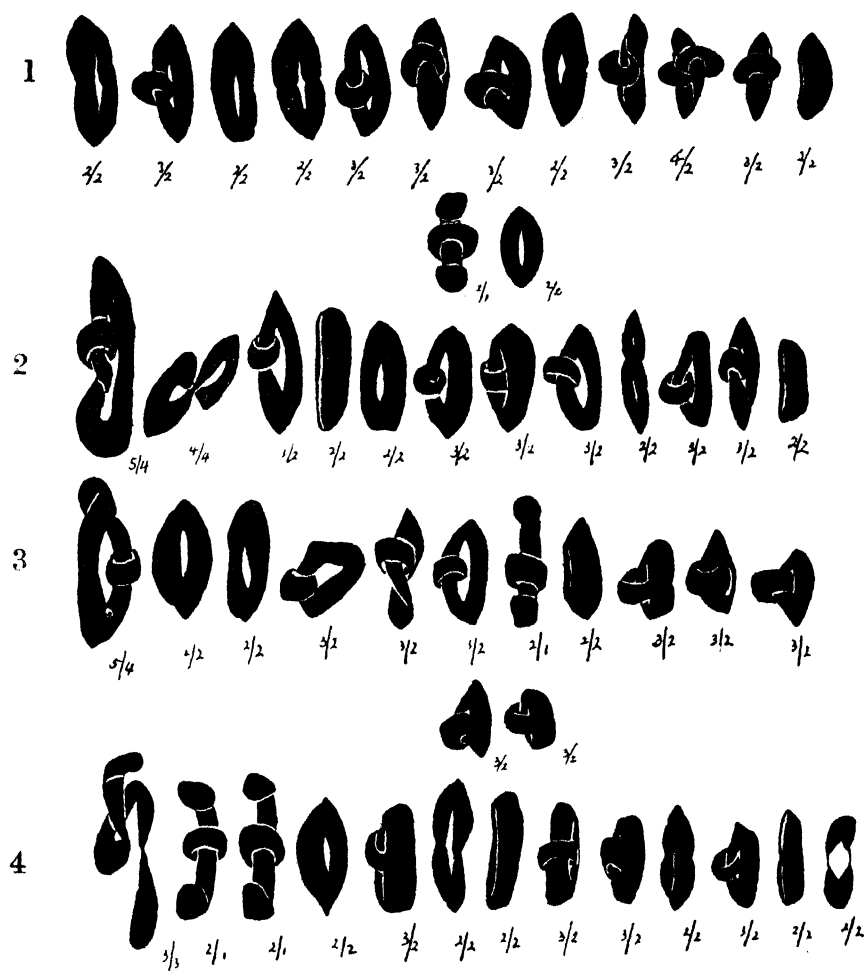 1
2/2 3/2 2/2 2/2 3/2 3/2 3/2 2/2 3/2 4/2 3/2 2/2
2/1 2/2
2
5/4 4/4 3/2 2/2 2/2 3/2 3/2 3/2 2/2 3/2 3/2 2/2
3
5/4 2/2 2/2 3/2 3/2 3/2 2/1 2/2 3/2 3/2 3/2
3/2 3/2
4
3/3 2/1 2/1 2/2 3/2 2/2 2/2 3/2 3/2 2/2 3/2 2/2 2/2